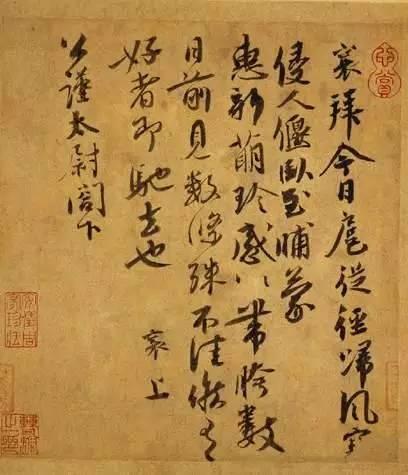 襄拜今日扈從徑歸風寒
侵人偃臥至晡蒙
惠新萌珍感〻帶胯數
日前見數條殊不佳候有
好者即馳去也 襄上
公謹太尉閤下
心賞